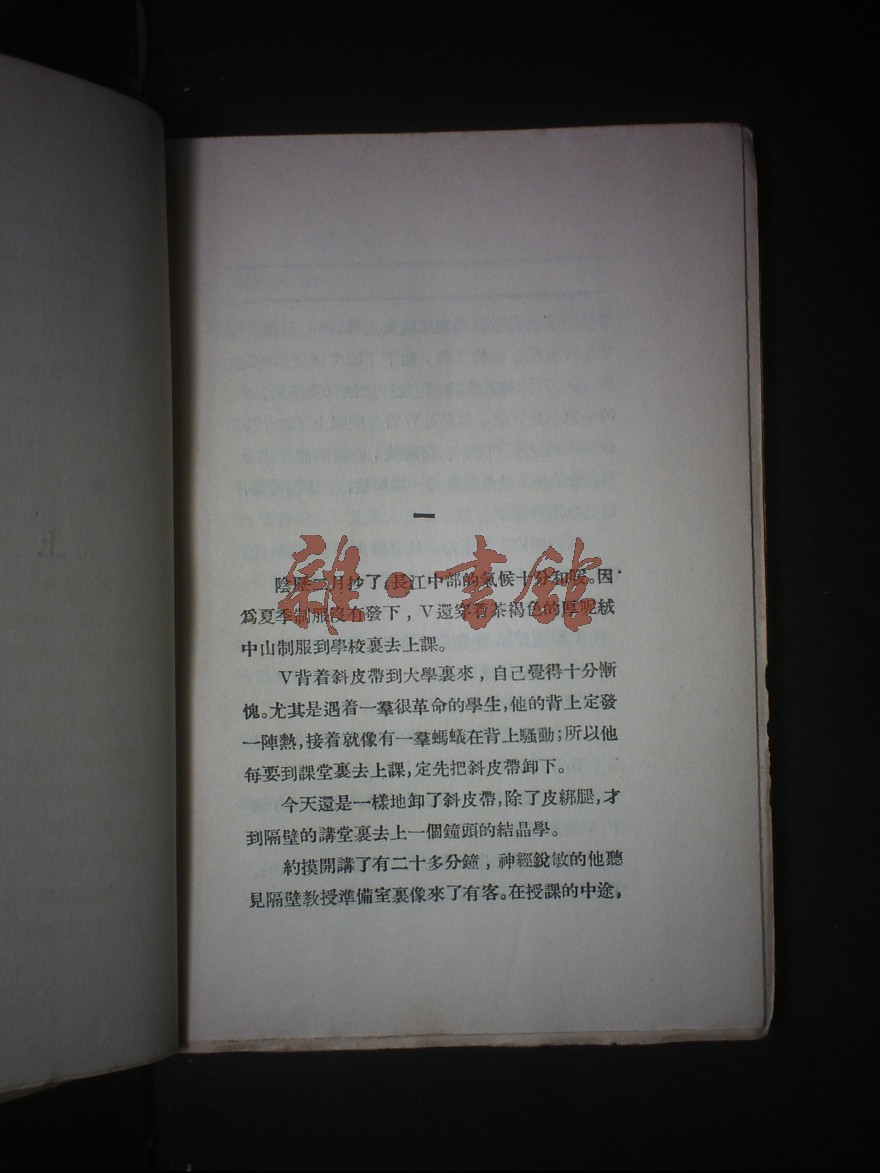 上
一
陰歷二月抄了。長江中部的氣候十分和暖。因
爲夏季制服沒有發下，V還穿着茶褐色的厚呢絨
中山制服到學校裏去上課。
V背着斜皮帶到大學裏來，自己覺得十分慚
愧。尤其是遇着一羣很革命的學生，他的背上定發
一陣熱，接着就像有一羣螞蟻在背上騷動；所以他
每要到課堂裏去上課，定先把斜皮帶卸下。
今天還是一樣地卸了斜皮帶，除了皮綁腿，才
到隔壁的講堂裏去上一個鐘頭的結晶學。
約摸開講了有二十多分鐘，神經銳敏的他聽
見隔壁教授準備室裏像來了有客。在授課的中途，
雜·書館